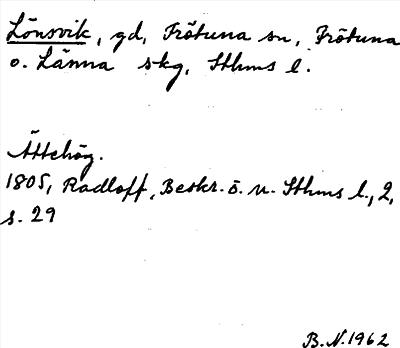 Lönsvik, gd, Frötuna sn, Frötuna
o. Länna skg, Sthms l.
Ättehög.
1805, Radloff, Beskr. ö. n. Sthms l., 2,
s. 29
B. N. 1962